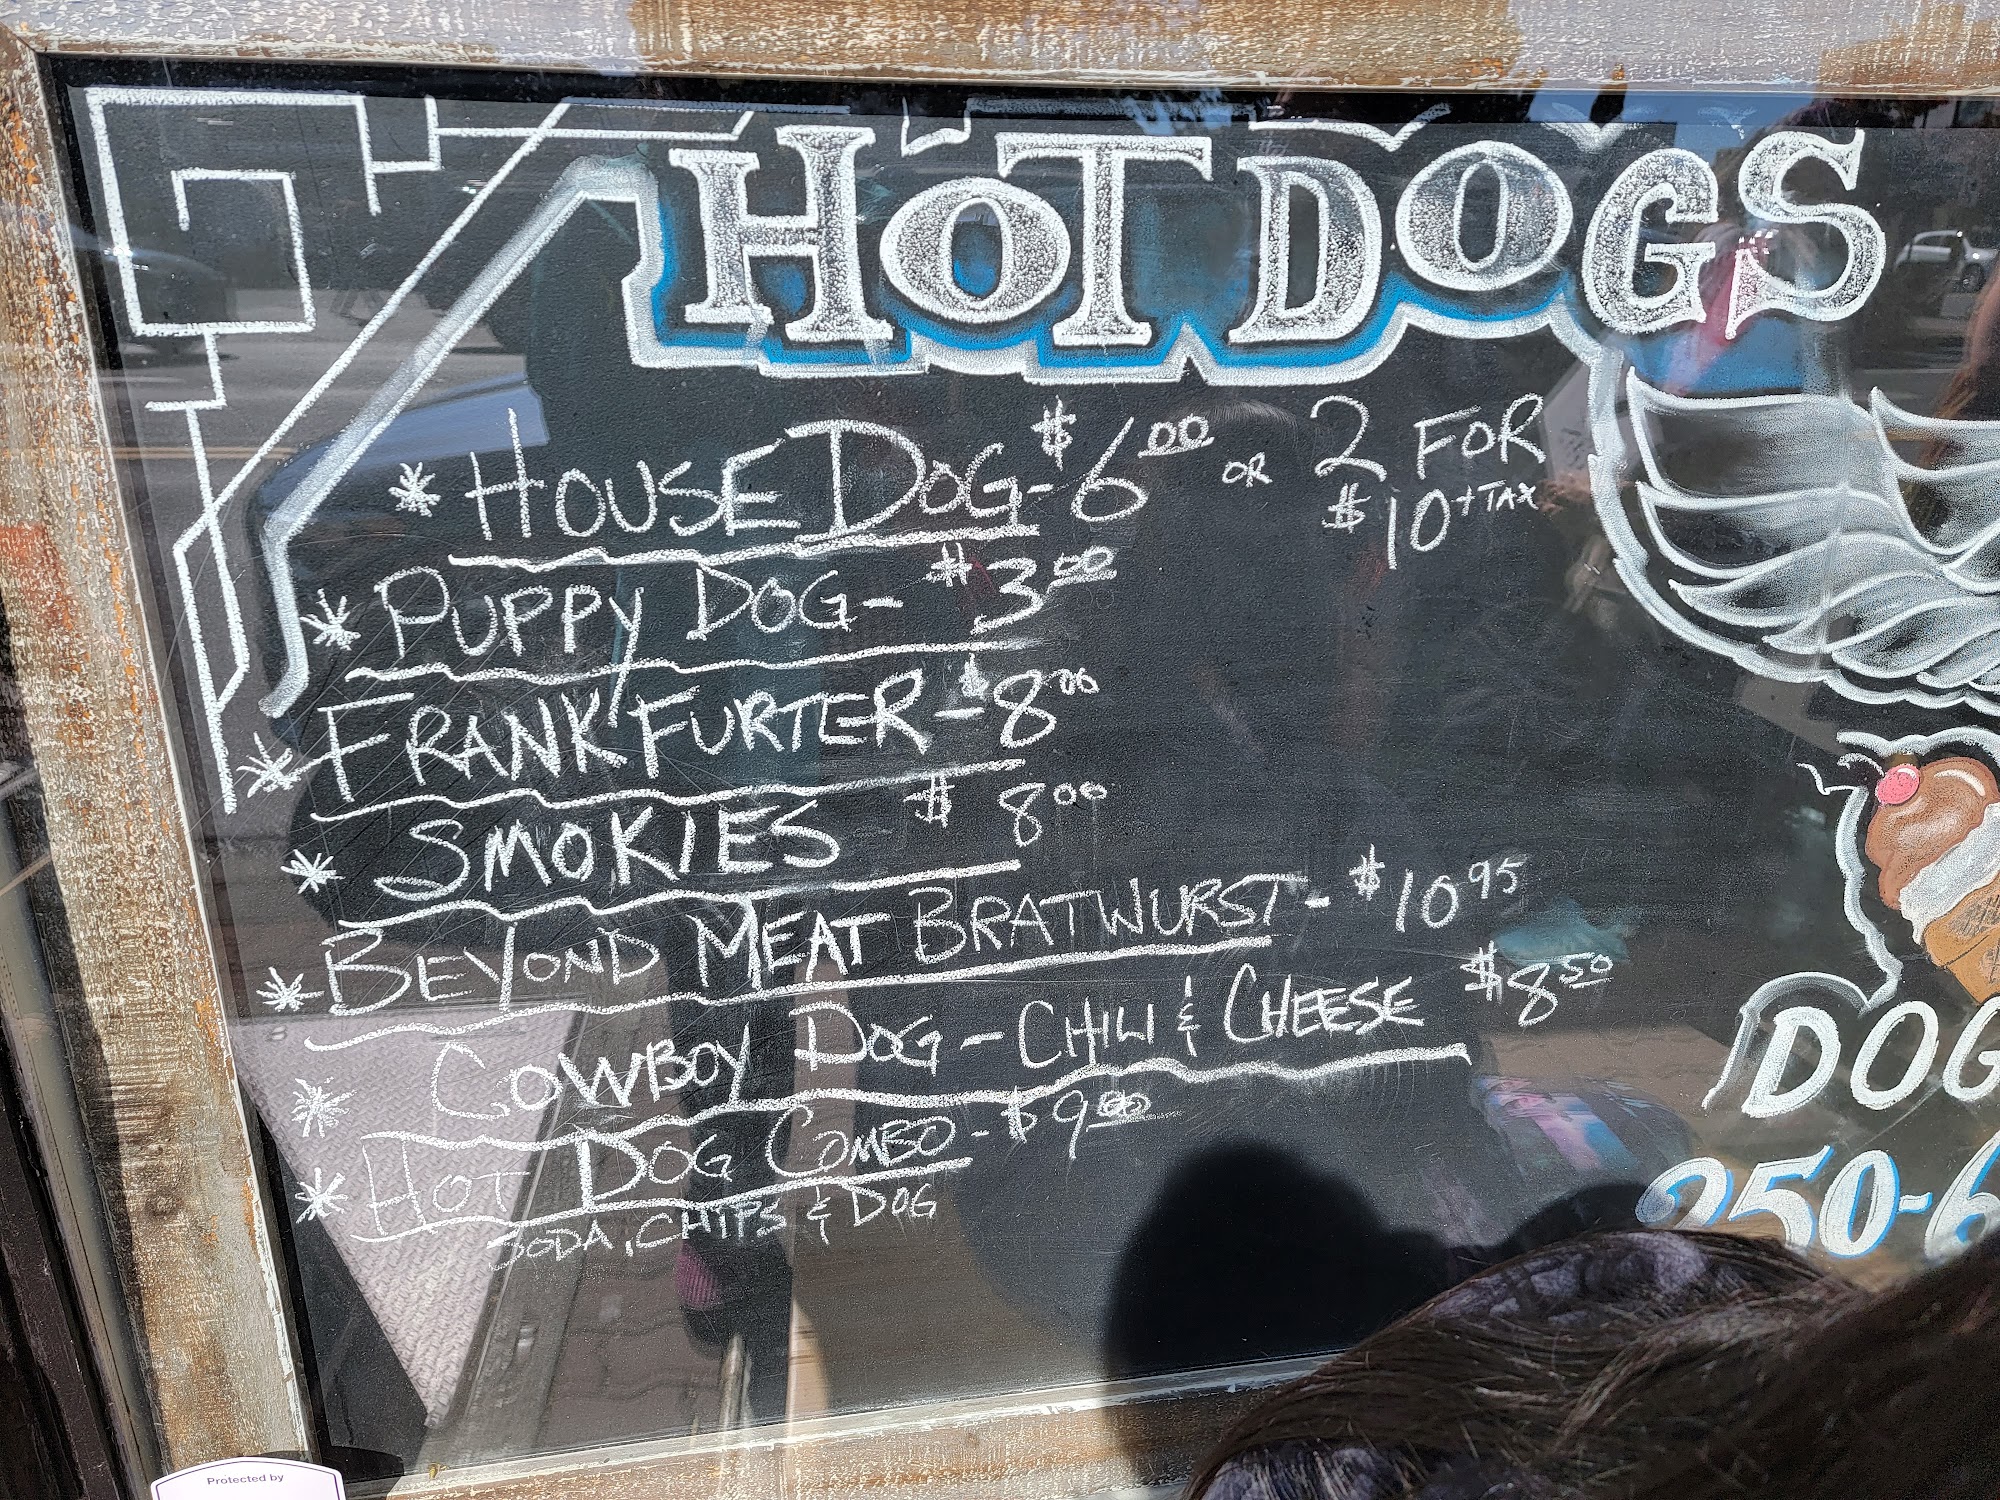 HOT DOGS
* HOUSE DOG - $6.00 OR 2 FOR
$10 + TAX
* PUPPY DOG - $3.00
* FRANKFURTER - $8.00
* SMOKIES $8.00
* BEYOND MEAT BRATWURST - $10.95
* COWBOY DOG - CHILI & CHEESE $8.50
* HOT DOG COMBO - $9.00
SODA, CHIPS & DOG
DOG
250-6
Protected by